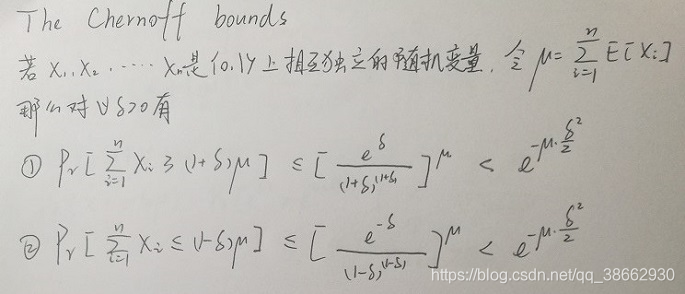 The Chernoff bounds
若 X₁, X₂, ····· Xₙ是{0,1}上相互独立的随机变量, 令 μ = \sum_{i=1}^{n} E[X_i]
那么对 ∀δ>0 有
① Pr[\sum_{i=1}^{n} X_i ≥ (1+δ)μ] ≤ [\frac{e^{δ}}{(1+δ)^{(1+δ)}}]^{μ} < e^{-μ·\frac{δ^2}{2}}
② Pr[\sum_{i=1}^{n} X_i ≤ (1-δ)μ] ≤ [\frac{e^{-δ}}{(1-δ)^{(1-δ)}}]^{μ} < e^{-μ·\frac{δ^2}{2}}
https://blog.csdn.net/qq_38662930